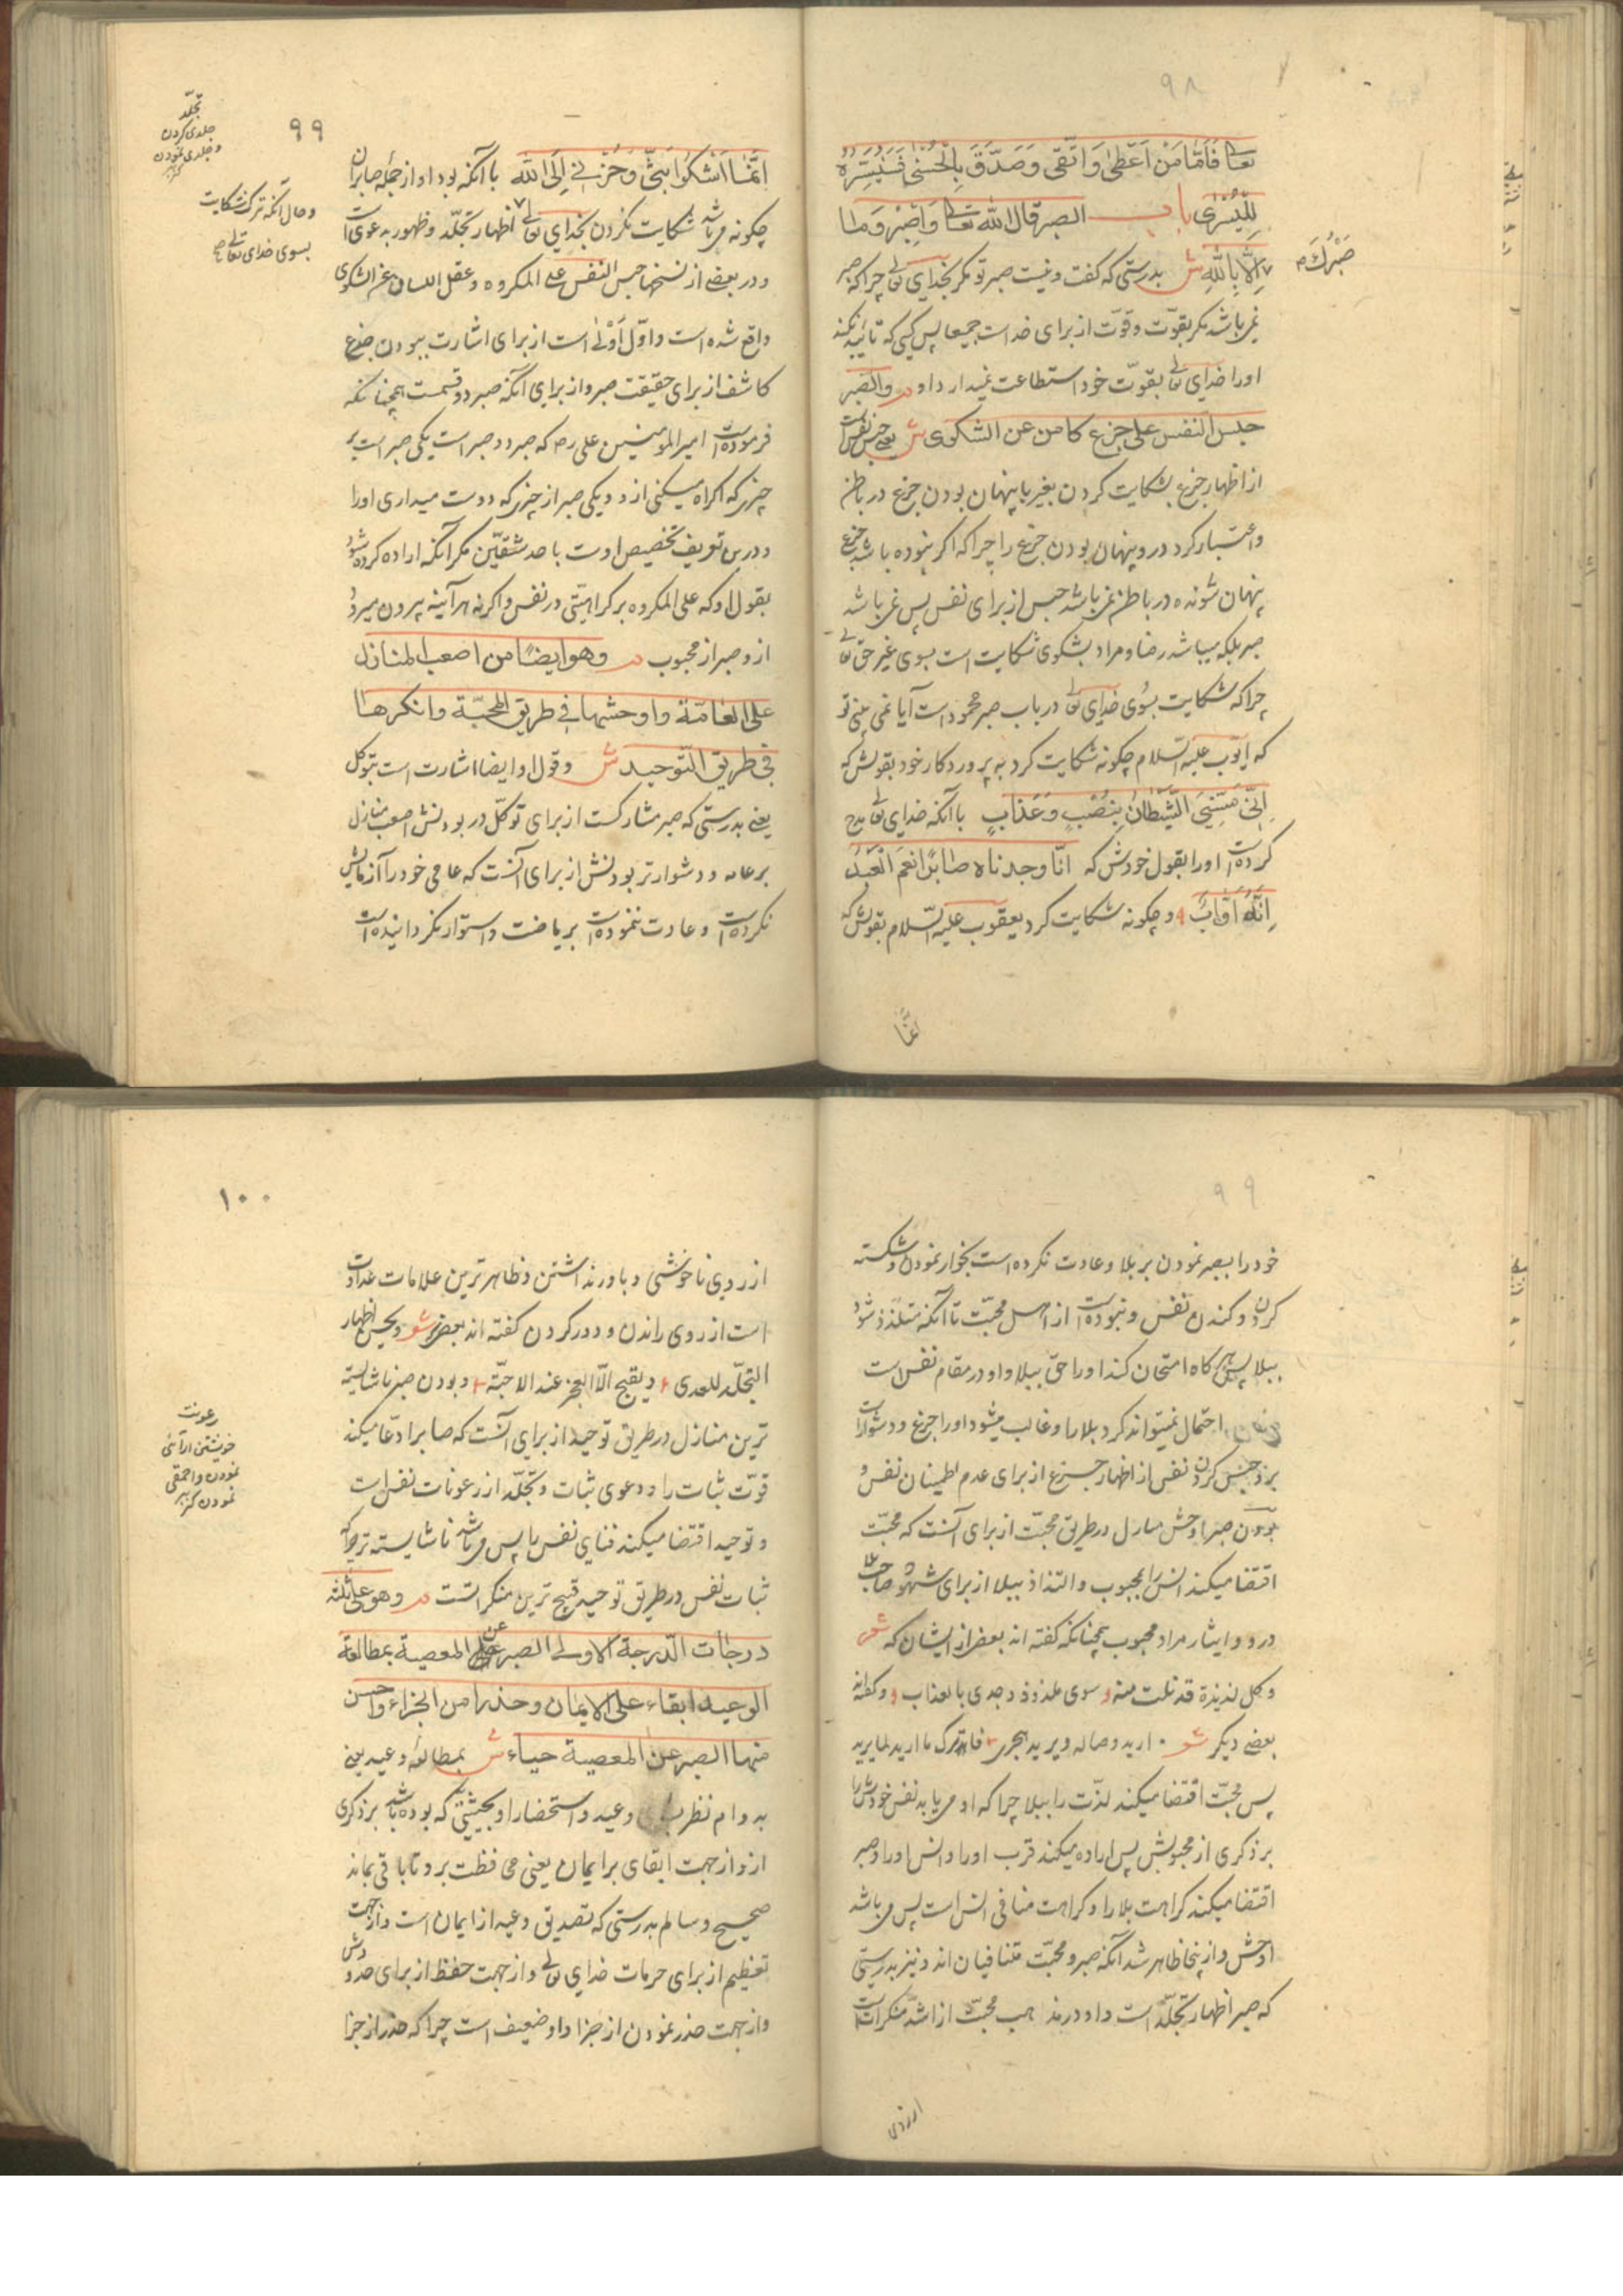 ۹۸
تعالی فَاَمَّا مَنْ اَعْطٰی وَاتَّقٰی وَصَدَّقَ بِالْحُسْنٰی فَسَنُیَسِّرُهُ
لِلْیُسْرٰی باب الصبر قال الله تعالی وَاصْبِرْ وَمَا
صَبْرُكَ
اِلَّا بِاللهِ ش بدرستی که گفت و نیست صبر تو مکر بخدای تعالی چرا که صبر
نمی‌باشد مکر بقوّت و قوّت از برای خداست جمیعا پس کسی که تائید نکند
اورا خدای تعالی بقوّت خود استطاعت نمیدارد او م والصبر
حبس النفس علی جزع کامن عن الشکوی ش یعنی حبس نفس است
از اظهار جزع بشکایت کردن بغیر با پنهان بودن جزع در باطن
واعتبار کرد درو پنهان بودن جزع را چرا که اکر نبوده باشد جزع
پنهان شونده در باطن نمی‌باشد حبس از برای نفس پس نمی‌باشد
صبر بلکه میباشد رضا و مراد بشکوی شکایت است بسوی غیر حق تعالی
چرا که شکایت بسوی خدای تعالی در باب صبر محمود است آیا نمی بینی تو
که ایوّب علیه السلام چکونه شکایت کرد به پروردکار خود بقولش که
اِنّی مَسَّنِیَ الشَّیْطَانُ بِنُصْبٍ وَعَذَابٍ با آنکه خدای تعالی مدح
کرده است اورا بقول خودش که انّا وجدناه صابرًا نعم العبد
اِنَّهُ اَوَّابٌ و چکونه شکایت کرد یعقوب علیه السّلام بقولش که
انّما
۹۹
تجلّد
جلدی کردن
و جلدی نمودن
کنز
اِنَّمَا اَشْکُوا بَثّی وَحُزْنی اِلَی الله با آنکه بود او از جمله صابران
و حال آنکه ترک شکایت
بسوی خدای تعالی صح
چکونه می‌باشد شکایت نکردن بخدای تعالی اظهار تجلّد و ظهور بدعوی است
و در بعضی از نسخها حبس النفس علی المکروه و عقل اللسان عن الشکوی
واقع شده است و اوّل اَوْلٰی است از برای اشارت ببودن جزع
کاشف از برای حقیقت صبر و از برای آنکه صبر دو قسمت همچنانکه
فرموده است امیرالمومنین علی رض که صبر دو صبر است یکی صبر است بر
چیزی که اکراه میکنی ازو و یکی صبر از چیزی که دوست میداری اورا
و درین تعریف تخصیص اوت باحد شقّین مکر آنکه اراده کرده شود
بقول او که علی المکروه بر کراهتی در نفس واکرنه هر آینه بیرون میرود
ازو صبر از محبوب م وهو ایضًا من اصعب المنازل
علی العامّة واوحشها فی طریق المحبّة وانکرها
فی طریق التّوحید ش و قول او ایضا اشارت است بتوکل
یعنی بدرستی که صبر مشارکست از برای توکّل در بودنش اصعب منازل
بر عامه و دشوارتر بودنش از برای آنست که عامی خود را آزمایش
نکرده است و عادت ننموده است بریاضت و استوار نکردانیده است
۹۹
خود را بصبر نمودن بر بلا و عادت نکرده است بخوار نمودن و شکسته
کردن و کندن نفس و نبوده است از اهل محبّت تا آنکه متلذذ شود
ببلا پس هر کاه امتحان کند اورا حق ببلا و او در مقام نفس است
احتمال نمیتواند کرد بلا را و غالب میشود اورا جزع و دشوار است
برو حبس کردن نفس از اظهار جزع از برای عدم اطمینان نفس و
بودن صبر اوحش منازل در طریق محبّت از برای آنست که محبّت
اقتضا میکند انس را بمحبوب و التذاذ ببلا از برای شهود صاحب بلا
درو و ایثار مراد محبوب همچنانکه کفته اند بعضی از ایشان که شعر
وکل لذیذة قد نلت منه سوی ملذوذ وجدی بالعذاب و کفته اند
بعضی دیکر شعر ارید وصاله ویرید هجری فاترک ما ارید لما یرید
پس محبّت اقتضا میکند لذّت را ببلا چرا که او می‌یابد نفس خودش را
بر ذکری از محبوبش پس اراده میکند قرب اورا و انس اورا و صبر
اقتضا میکند کراهت بلا را و کراهت منافی انس است پس می‌باشد
اوحش و از اینجا ظاهر شد آنکه صبر و محبّت متنافیان اند و نیز بدرستی
که صبر اظهار تجلّد است و او در مذهب محبّت از اشدّ منکرات است
از روی
۱۰۰
از روی ناخوشی و باور نداشتن و ظاهرترین علامات عداوت
است از روی راندن و دور کردن کفته اند بعضی شعر ویحسن اظهار
التجلّد للعدی ویقبح الّا العجز عند الاحبّة و بودن صبر ناشایسته
ترین منازل در طریق توحید از برای آنست که صابر ادّعا میکند
رعونت
خویشتن آرائی
نمودن و احمقی
نمودن کنز
قوّت ثبات را و دعوی ثبات و تجلّد از رعونات نفس است
و توحید اقتضا میکند فنای نفس را پس می‌باشد ناشایسته تر چرا که
ثبات نفس در طریق توحید قبیح ترین منکراتست م وهو علی ثلثة
درجات الدّرجة الاولی الصبر عن المعصیة بمطالعة
الوعید ابقاء علی الایمان وحذرا من الجزاء واحسن
منها الصبر عن المعصیة حیاء ش بمطالعۀ وعید یعنی
بدوام نظر وعید و استحضار او بحیثیتی که بوده باشد بر ذکری
ازو از جهت ابقای بر ایمان یعنی محافظت برو تا باقی بماند
صحیح و سالم بدرستی که تصدیق وعید از ایمان است و از جهت
تعظیم از برای حرمات خدای تعالی و از جهت حفظ از برای حدودش
و از جهت حذر نمودن از جزا و او ضعیف است چرا که حذر از جزا